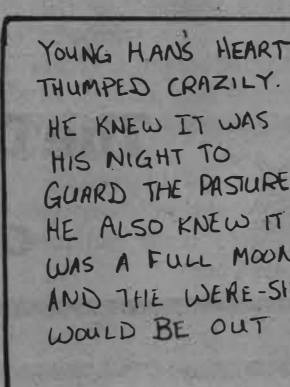 YOUNG HAN'S HEART
THUMPED CRAZILY.
HE KNEW IT WAS
HIS NIGHT TO
GUARD THE PASTURE
HE ALSO KNEW IT
WAS A FULL MOON
AND THE
WOULD BE OUT